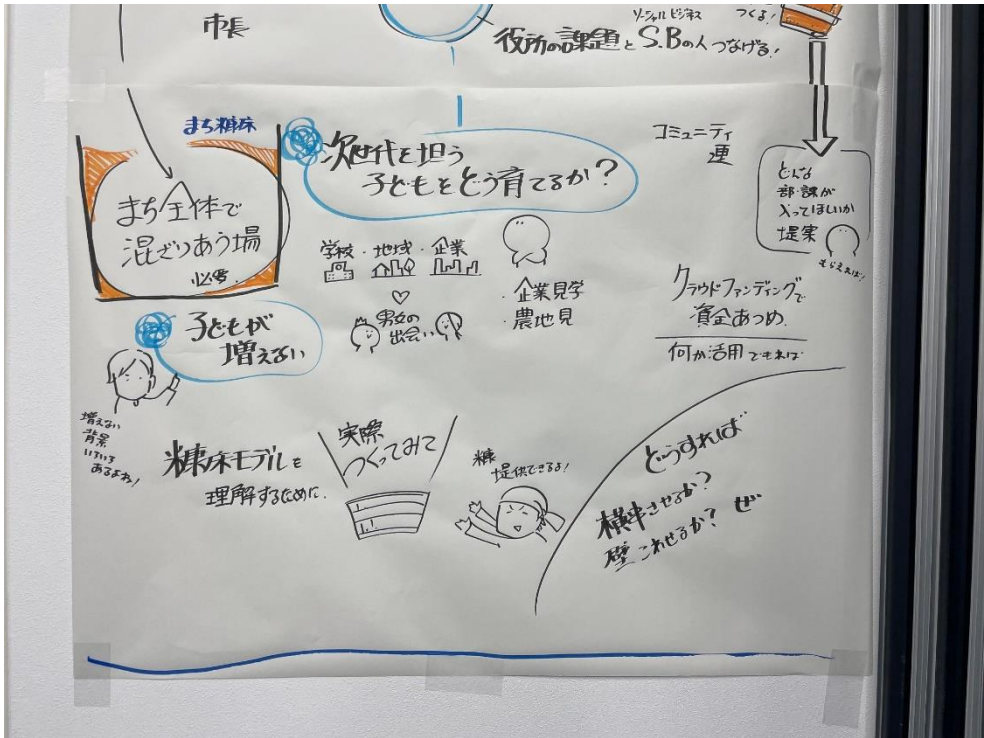 市長
ソーシャルビジネス
つくる!
役所の課題とS.Bの人つなげる!
まち糠床
まち全体で
混ざりあう場
必要
次世代を担う
子どもをどう育てるか?
コミュニティ
連
どんな
部・課が
入ってほしいか
提案
もらえれば!
学校・地域・企業
男女の
出会い
・企業見学
・農地見
クラウドファンディングで
資金あつめ
何か活用できれば
子どもが
増えない
増えない
背景
いろいろ
あるよね!
糠床モデルを
理解するために
実際
つくってみて
糠
提供できるよ!
どうすれば
横串させるか?
壁こわせるか? ぜ